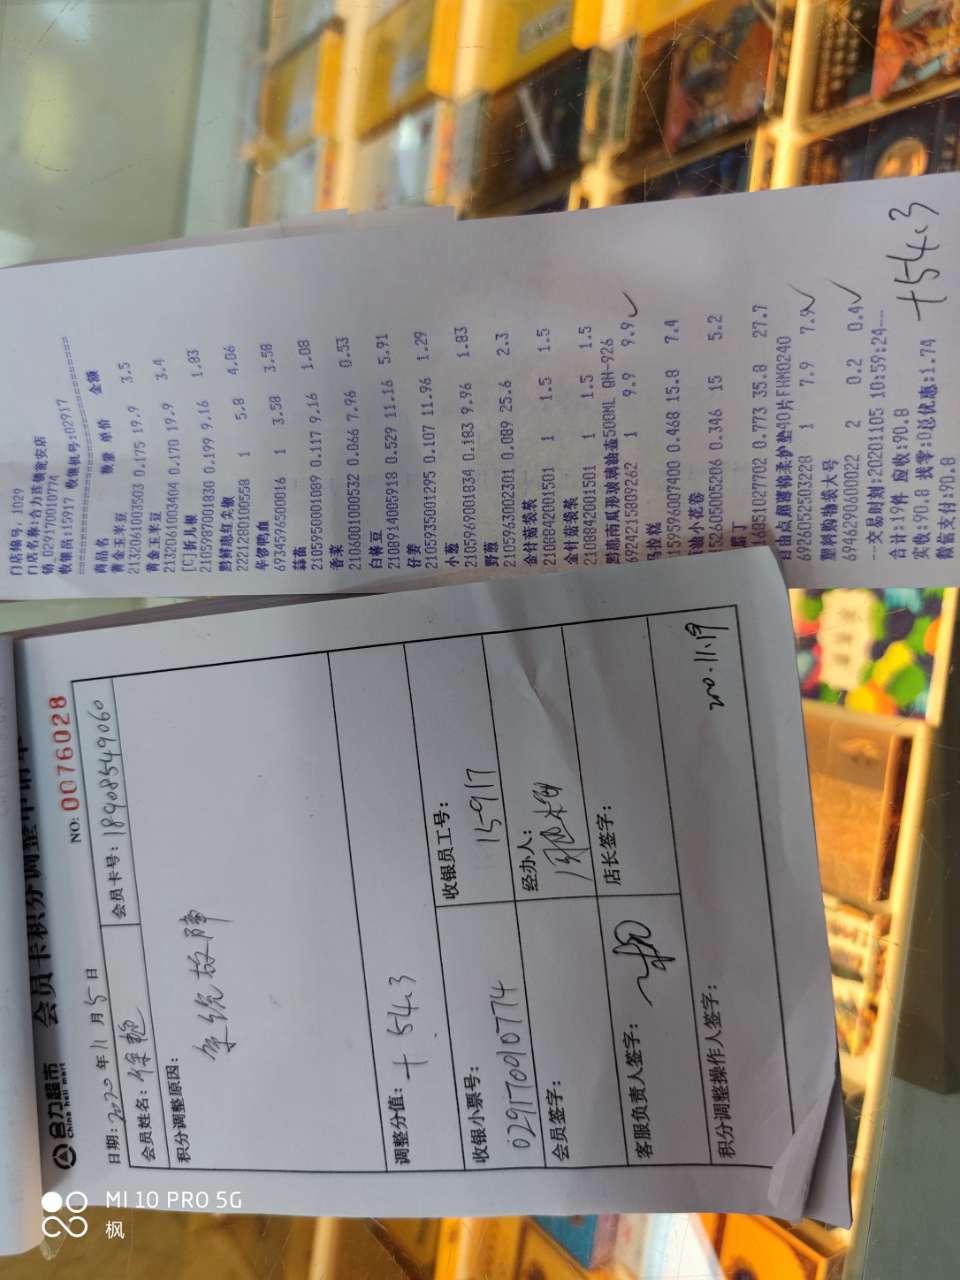 门店编号: 1029
门店名称:合力连锁瓮安店
销 029170010774
收银员:15917 收银机号:02917
商品名 数量 单价 金额
黄金玉米豆
2132061003503 0.175 19.9 3.5
黄金玉米豆
2132061003404 0.170 19.9 3.4
[C]折儿根
2105987001830 0.199 9.16 1.83
黔鲜惠红么椒
2221280100558 1 5.8 4.06
华馨鸭血
6934596500016 1 3.58 3.58
蒜苗
2105955001089 0.117 9.16 1.08
香菜
2106001000532 0.066 7.96 0.53
白豌豆
2100914005918 0.529 11.16 5.91
仔姜
2105935001295 0.107 11.96 1.29
小葱
2105969001834 0.183 9.96 1.83
野葱
2105963002301 0.089 25.6 2.3
金针菇袋装
2108842001501 1 1.5 1.5
金针菇袋装
2108842001501 1 1.5 1.5
黔越南瓜形玻璃油壶500ML QH-926
6924215809262 1 9.9 9.9
2159596007400 0.468 15.8 7.4
油小花卷
2152605005206 0.346 15 5.2
2168510277702 0.773 35.8 27.7
百消点超薄棉柔护垫40片FHMQ240
6926052503228 1 7.9 7.9
塑料购物袋大号
6946290600022 2 0.2 0.4
---交易时刻:20201105 10:59:24---
合计:19件 应收:90.8
实收:90.8 找零:0总优惠:1.74
微信支付:90.8
+54.3
合力超市
China heli mart
会员卡积分调整申请单
NO: 0076028
日期: 2020 年 11 月 5 日
会员姓名: 徐艳 会员卡号: 18908549060
积分调整原因:
系统故障
调整分值: +54.3
收银小票号: 收银员工号:
029170910774 15917
会员签字: 经办人:
客服负责人签字: 店长签字:
积分调整操作人签字:
2020.11.19
MI 10 PRO 5G
枫